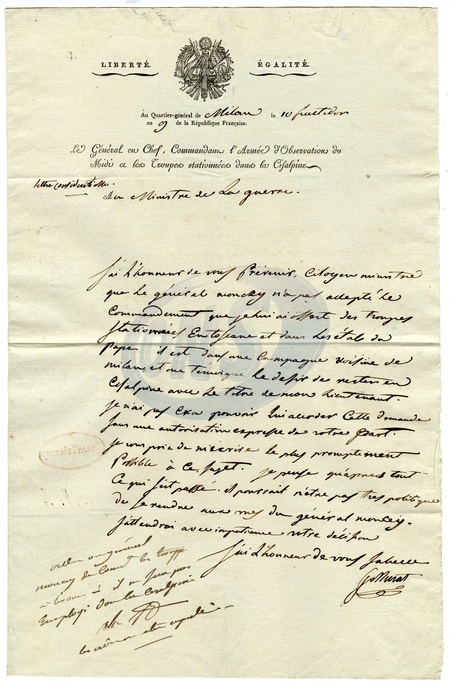 LIBERTÉ. ÉGALITÉ.
Au Quartier-général de Milan le 10 fructidor
an 9 de la République Française.
Le Général en Chef, Commandant l'Armée d'Observation du
Midi et les Troupes stationnées dans la Cisalpine
lettre confidentielle.
Au Ministre de La guerre.
J'ai L'honneur de vous Prévenir, Citoyen ministre
que Le général moncey n'a pas adepté Le
Commandement que je lui ai offert des troupes
stationnées En toscane et dans Les états du
Pape il est dans une Campagne voisine de
milan et me temoigne Le desir de rester en
Cisalpine avec Le titre de mon Lieutenant.
je n'ai pas Cru pouvoir Lui accorder Cette demande
sans une autorisation expresse de votre part.
je vous prie de m'écrire Le plus promptement
Possible à Ce sujet. je pense qu'apres tout
Ce qui s'est passé. il pourrait n'etre pas tres politique
de se rendre aux du général moncey.
J'attendrai avec impatience votre décision
J'ai L'honneur de vous saluer
Murat
général
moncey
employé dans la Cisalpine